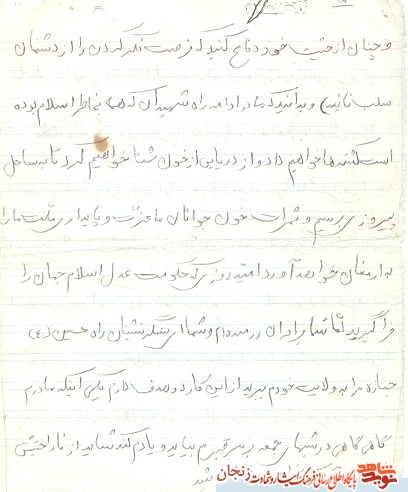 و چنان از حیثیت خود دفاع کنید که فرصت فکر کردن را از دشمنان
سلب نمائید و بدانید که ما در ادامه راه شهیدان که همه بخاطر اسلام بوده
است کشته‌ها خواهیم داد و از دریایی از خون شنا خواهیم کرد تا به ساحل
پیروزی برسیم و ثمرات خون جوانان ما عزت و پایداری ملت ما را
به ارمغان خواهد آورد امید روزی که حکومت عدل اسلام جهان را
فرا گیرد اما شما برادران رزمنده‌ام و شما ای سنگر نشینان راه حسین (ع)
جنازه مرا به ولایت خودم ببرید از این کار دو هدف دارم یکی اینکه مادرم
گاهی گاهی در شبهای جمعه بر سر قبرم بیاید و یادم کند شاید از ناراحتیش
شد
نوید شاهد
پایگاه اطلاع رسانی فرهنگ ایثار و شهادت زنجان